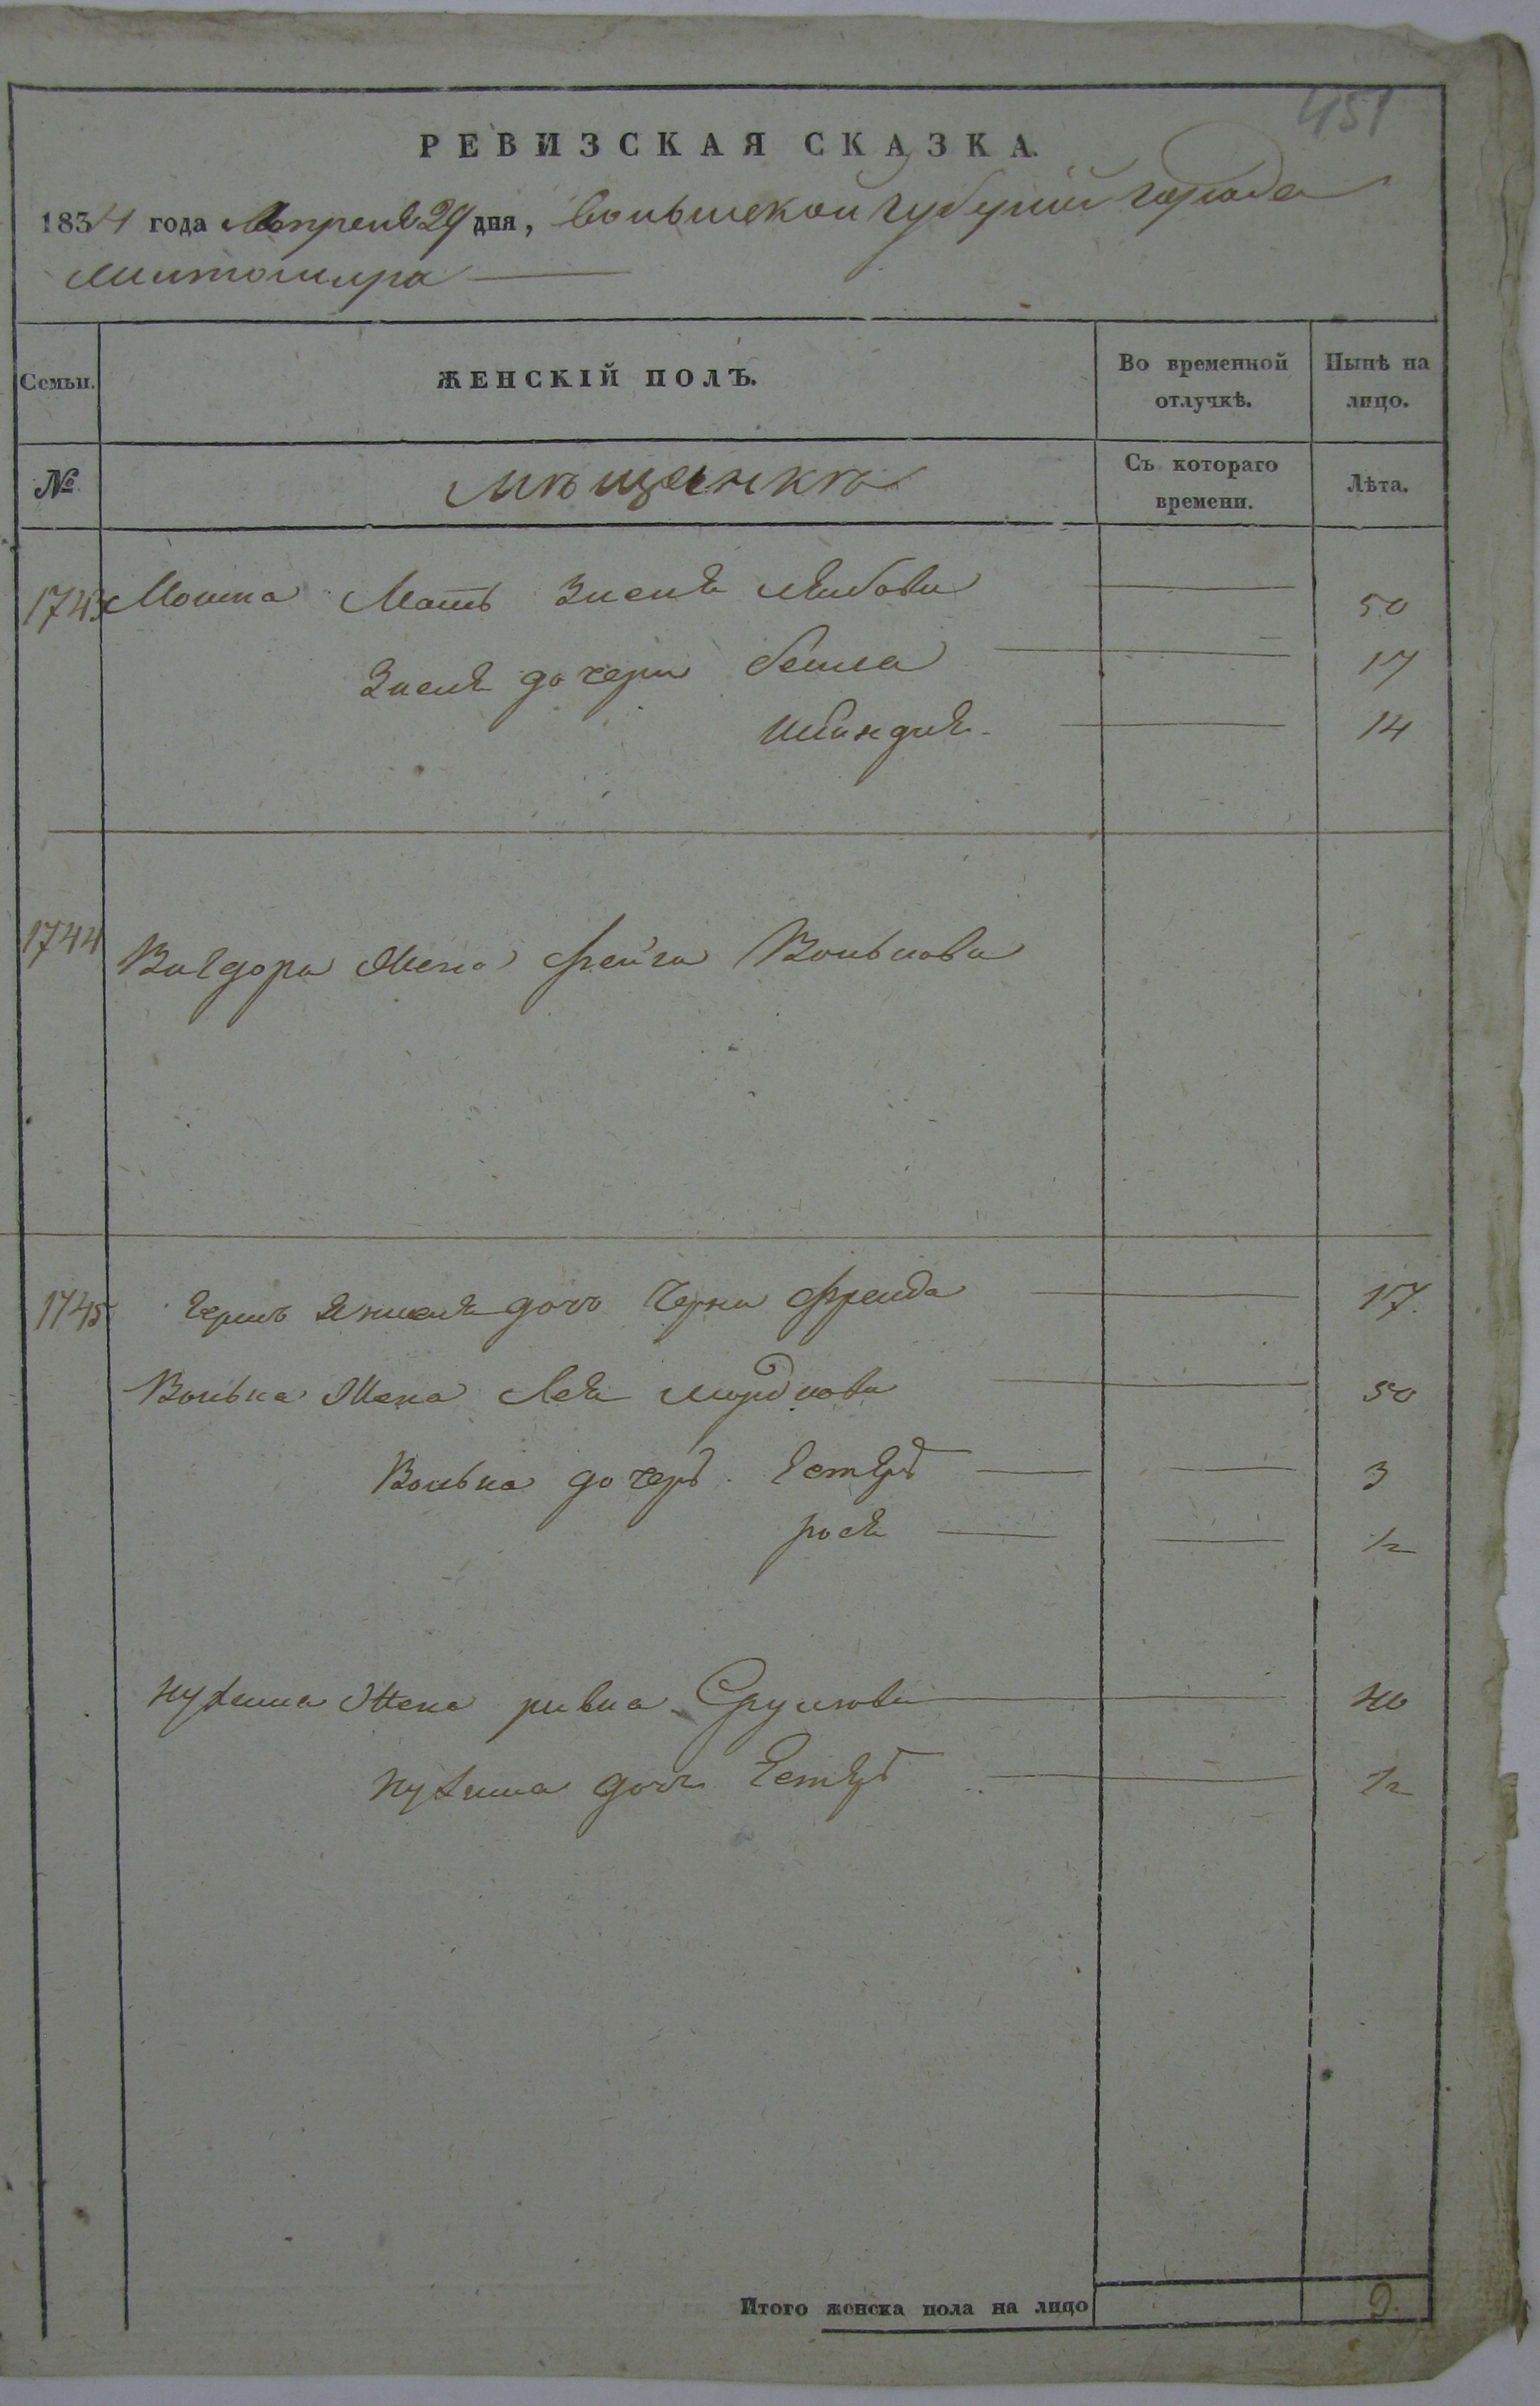 451
РЕВИЗСКАЯ СКАЗКА.
1834 года Апреля 29 дня, волынской губернии города
житомира
Семьи. ЖЕНСКІЙ ПОЛЪ. Во временной отлучкѣ. Нынѣ на лицо.
№ мещанкъ Съ котораго времени. Лѣта.
1743 Мошка Мать Зиселя Лейбова 50
Зиселя дочери бейла 17
шейндля 14
1744 жена фейга Волькова
1745 дочь Черна фрейда 17.
Волька жена Лея мордкова 50
Волька дочерѣ Естеръ 3
рося 1/2
Нухима жена ривка Срулова 40
Нухима дочь Естеръ 1/2
Итого женска пола на лицо 9.